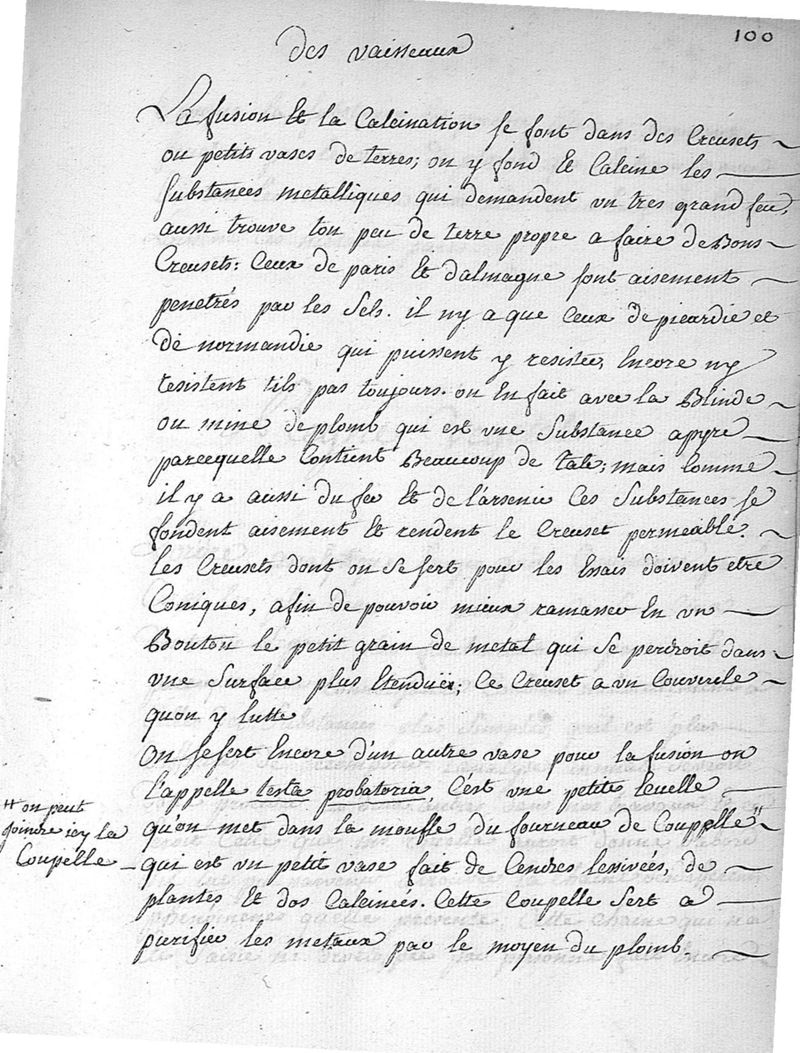 100
des vaisseaux
La fusion et la Calcination se font dans des Creusets
ou petits vases de terres; on y fond et Calcine les
substances metalliques qui demandent un tres grand feu,
aussi trouve ton peu de terre propre a faire de Bons
Creusets: Ceux de paris et d'almagne sont aisement
penetrés par les Sels. il ny a que Ceux de picardie et
de normandie qui puissent y resister, Encore ny
resistent tils pas toujours. on En fait avec la Blinde
ou mine de plomb qui est une Substance apyre
parcequelle Contient Beaucoup de talc; mais Comme
il y a aussi du fer et de l'arsenic Ces Substances se
fondent aisement et rendent le Creuset permeable.
les Creusets dont on se sert pour les Essais doivent etre
Coniques, afin de pouvoir mieux ramasser En un
Bouton le petit grain de metal qui se perdroit dans
une Surface plus Etenduë; Ce Creuset a un Couvercle
quon y lutte
On se sert Encore d'un autre vase pour la fusion on
l'appelle testa probatoria C'est une petite Ecuelle
qu'on met dans la moufle du fourneau de Couppelle"
qui est un petit vase fait de Cendres lessivées, de
plantes et d'os Calcinés. Cette Coupelle Sert a
purifier les metaux par le moyen du plomb.
" on peut
joindre icy la
Coupelle